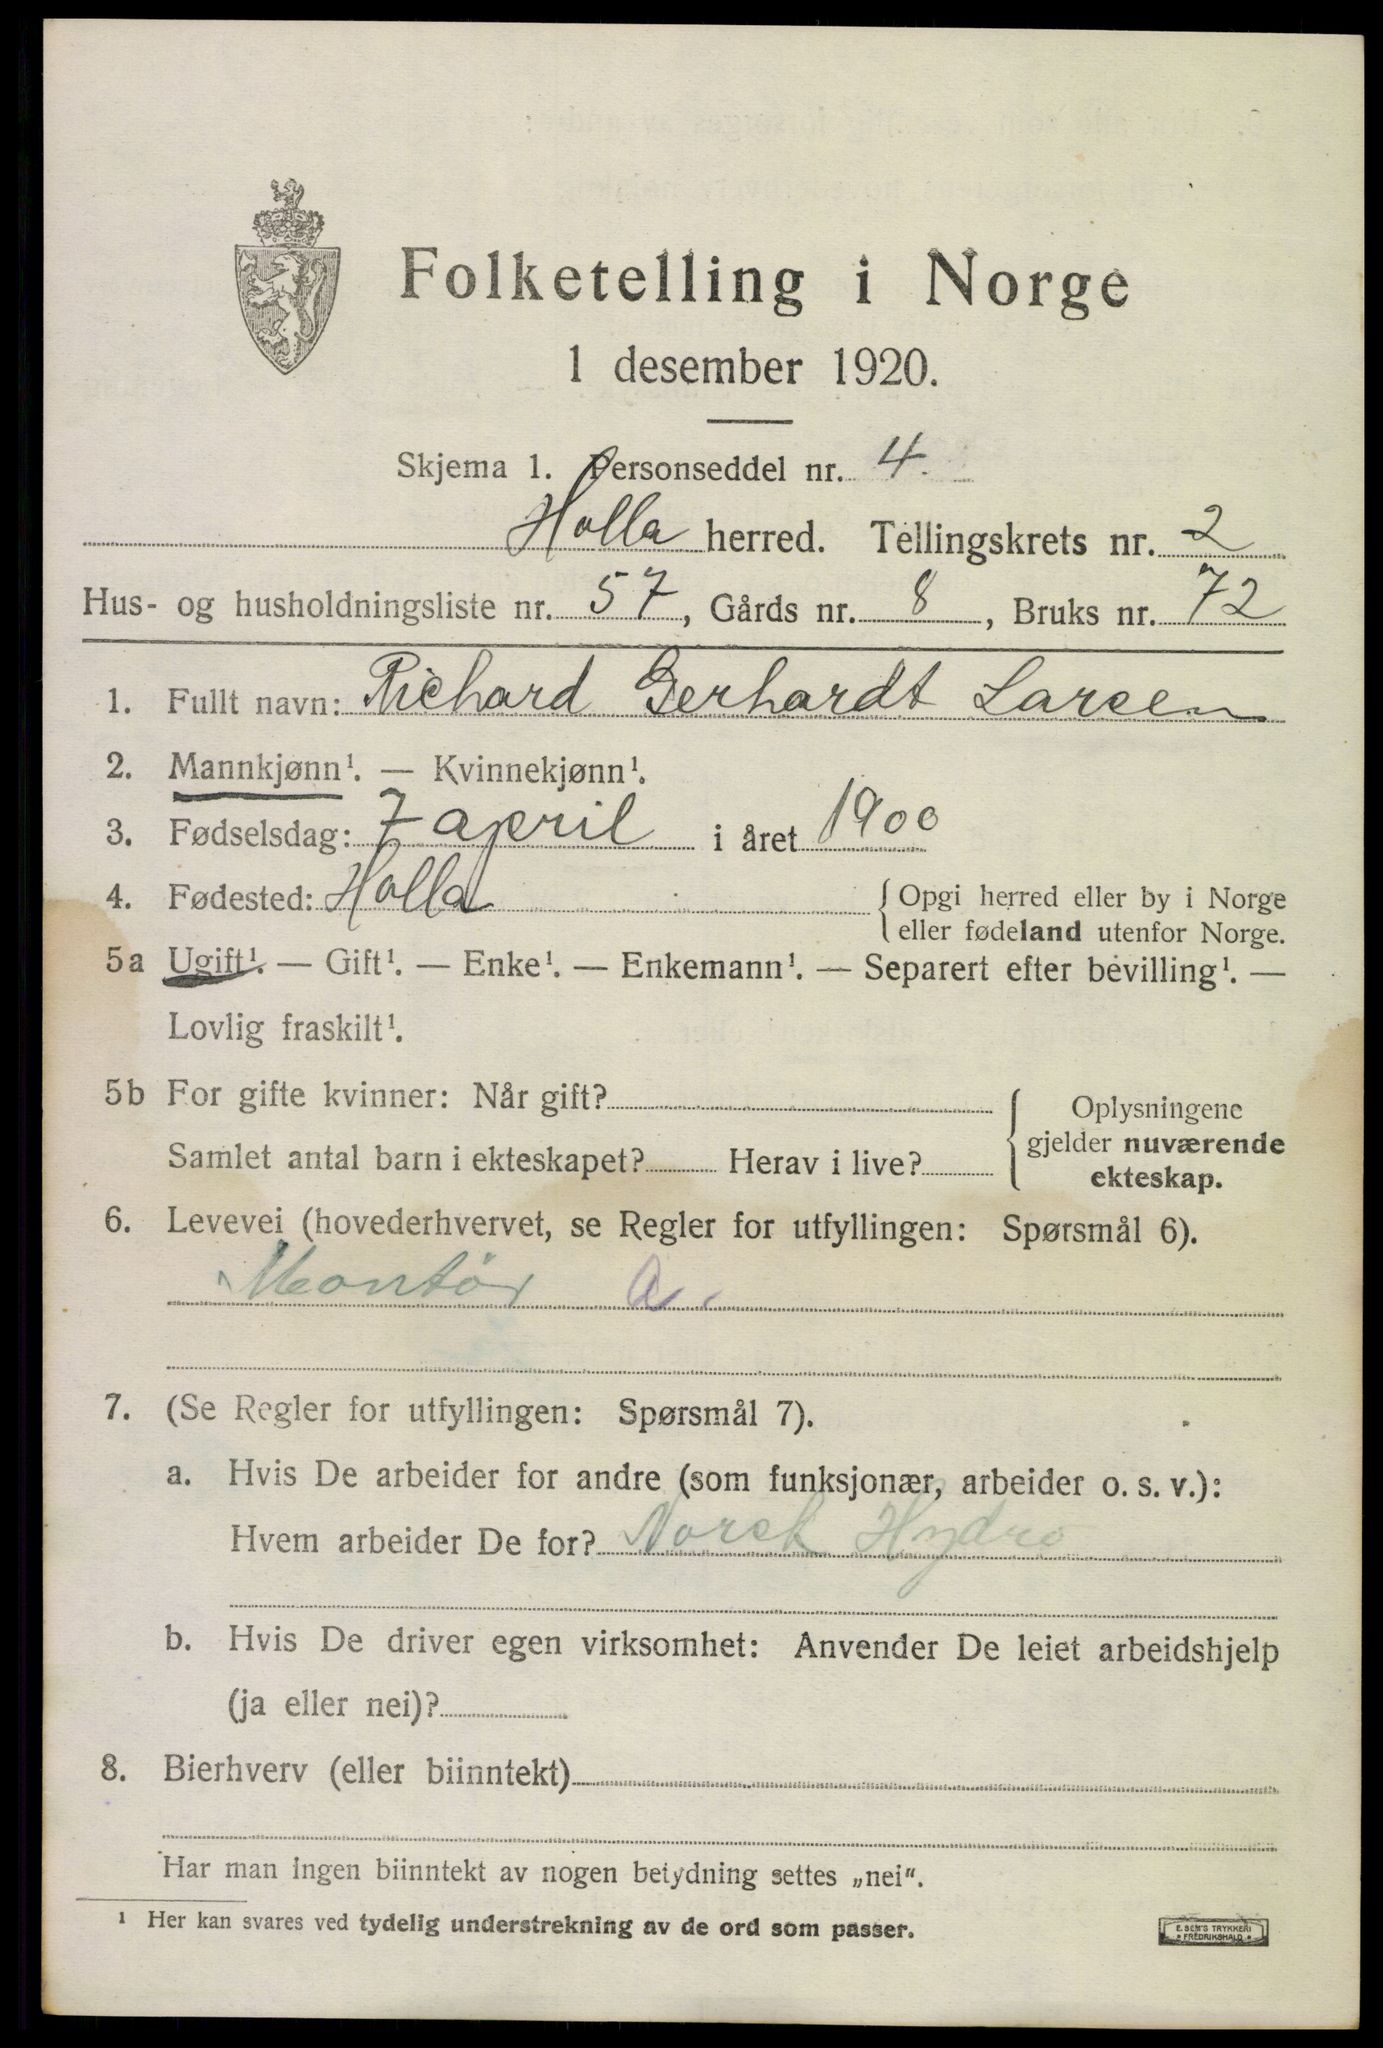 Folketelling i Norge
1 desember 1920.
Skjema 1. Personseddel nr. 4.
Holla herred. Tellingskrets nr. 2
Hus- og husholdningsliste nr. 57, Gårds nr. 8, Bruks nr. 72
1. Fullt navn: Richard Gerhardt Larsen
2. Mannkjønn¹. — Kvinnekjønn¹.
3. Fødselsdag: 7 april i året 1900
4. Fødested: Holla { Opgi herred eller by i Norge
eller fødeland utenfor Norge.
5a Ugift¹. — Gift¹. — Enke¹. — Enkemann¹. — Separert efter bevilling¹. —
Lovlig fraskilt¹.
5b For gifte kvinner: Når gift? { Oplysningene
gjelder nuværende
Samlet antal barn i ekteskapet? Herav i live?
ekteskap.
6. Levevei (hovederhvervet, se Regler for utfyllingen: Spørsmål 6).
Montør a.
7. (Se Regler for utfyllingen: Spørsmål 7).
a. Hvis De arbeider for andre (som funksjonær, arbeider o. s. v.):
Hvem arbeider De for? Norsk Hydro
b. Hvis De driver egen virksomhet: Anvender De leiet arbeidshjelp
(ja eller nei)?
8. Bierhverv (eller biinntekt)
Har man ingen biinntekt av nogen betydning settes „nei“.
¹ Her kan svares ved tydelig understrekning av de ord som passer.
E. SEM'S TRYKKERI
* FREDRIKSHALD *